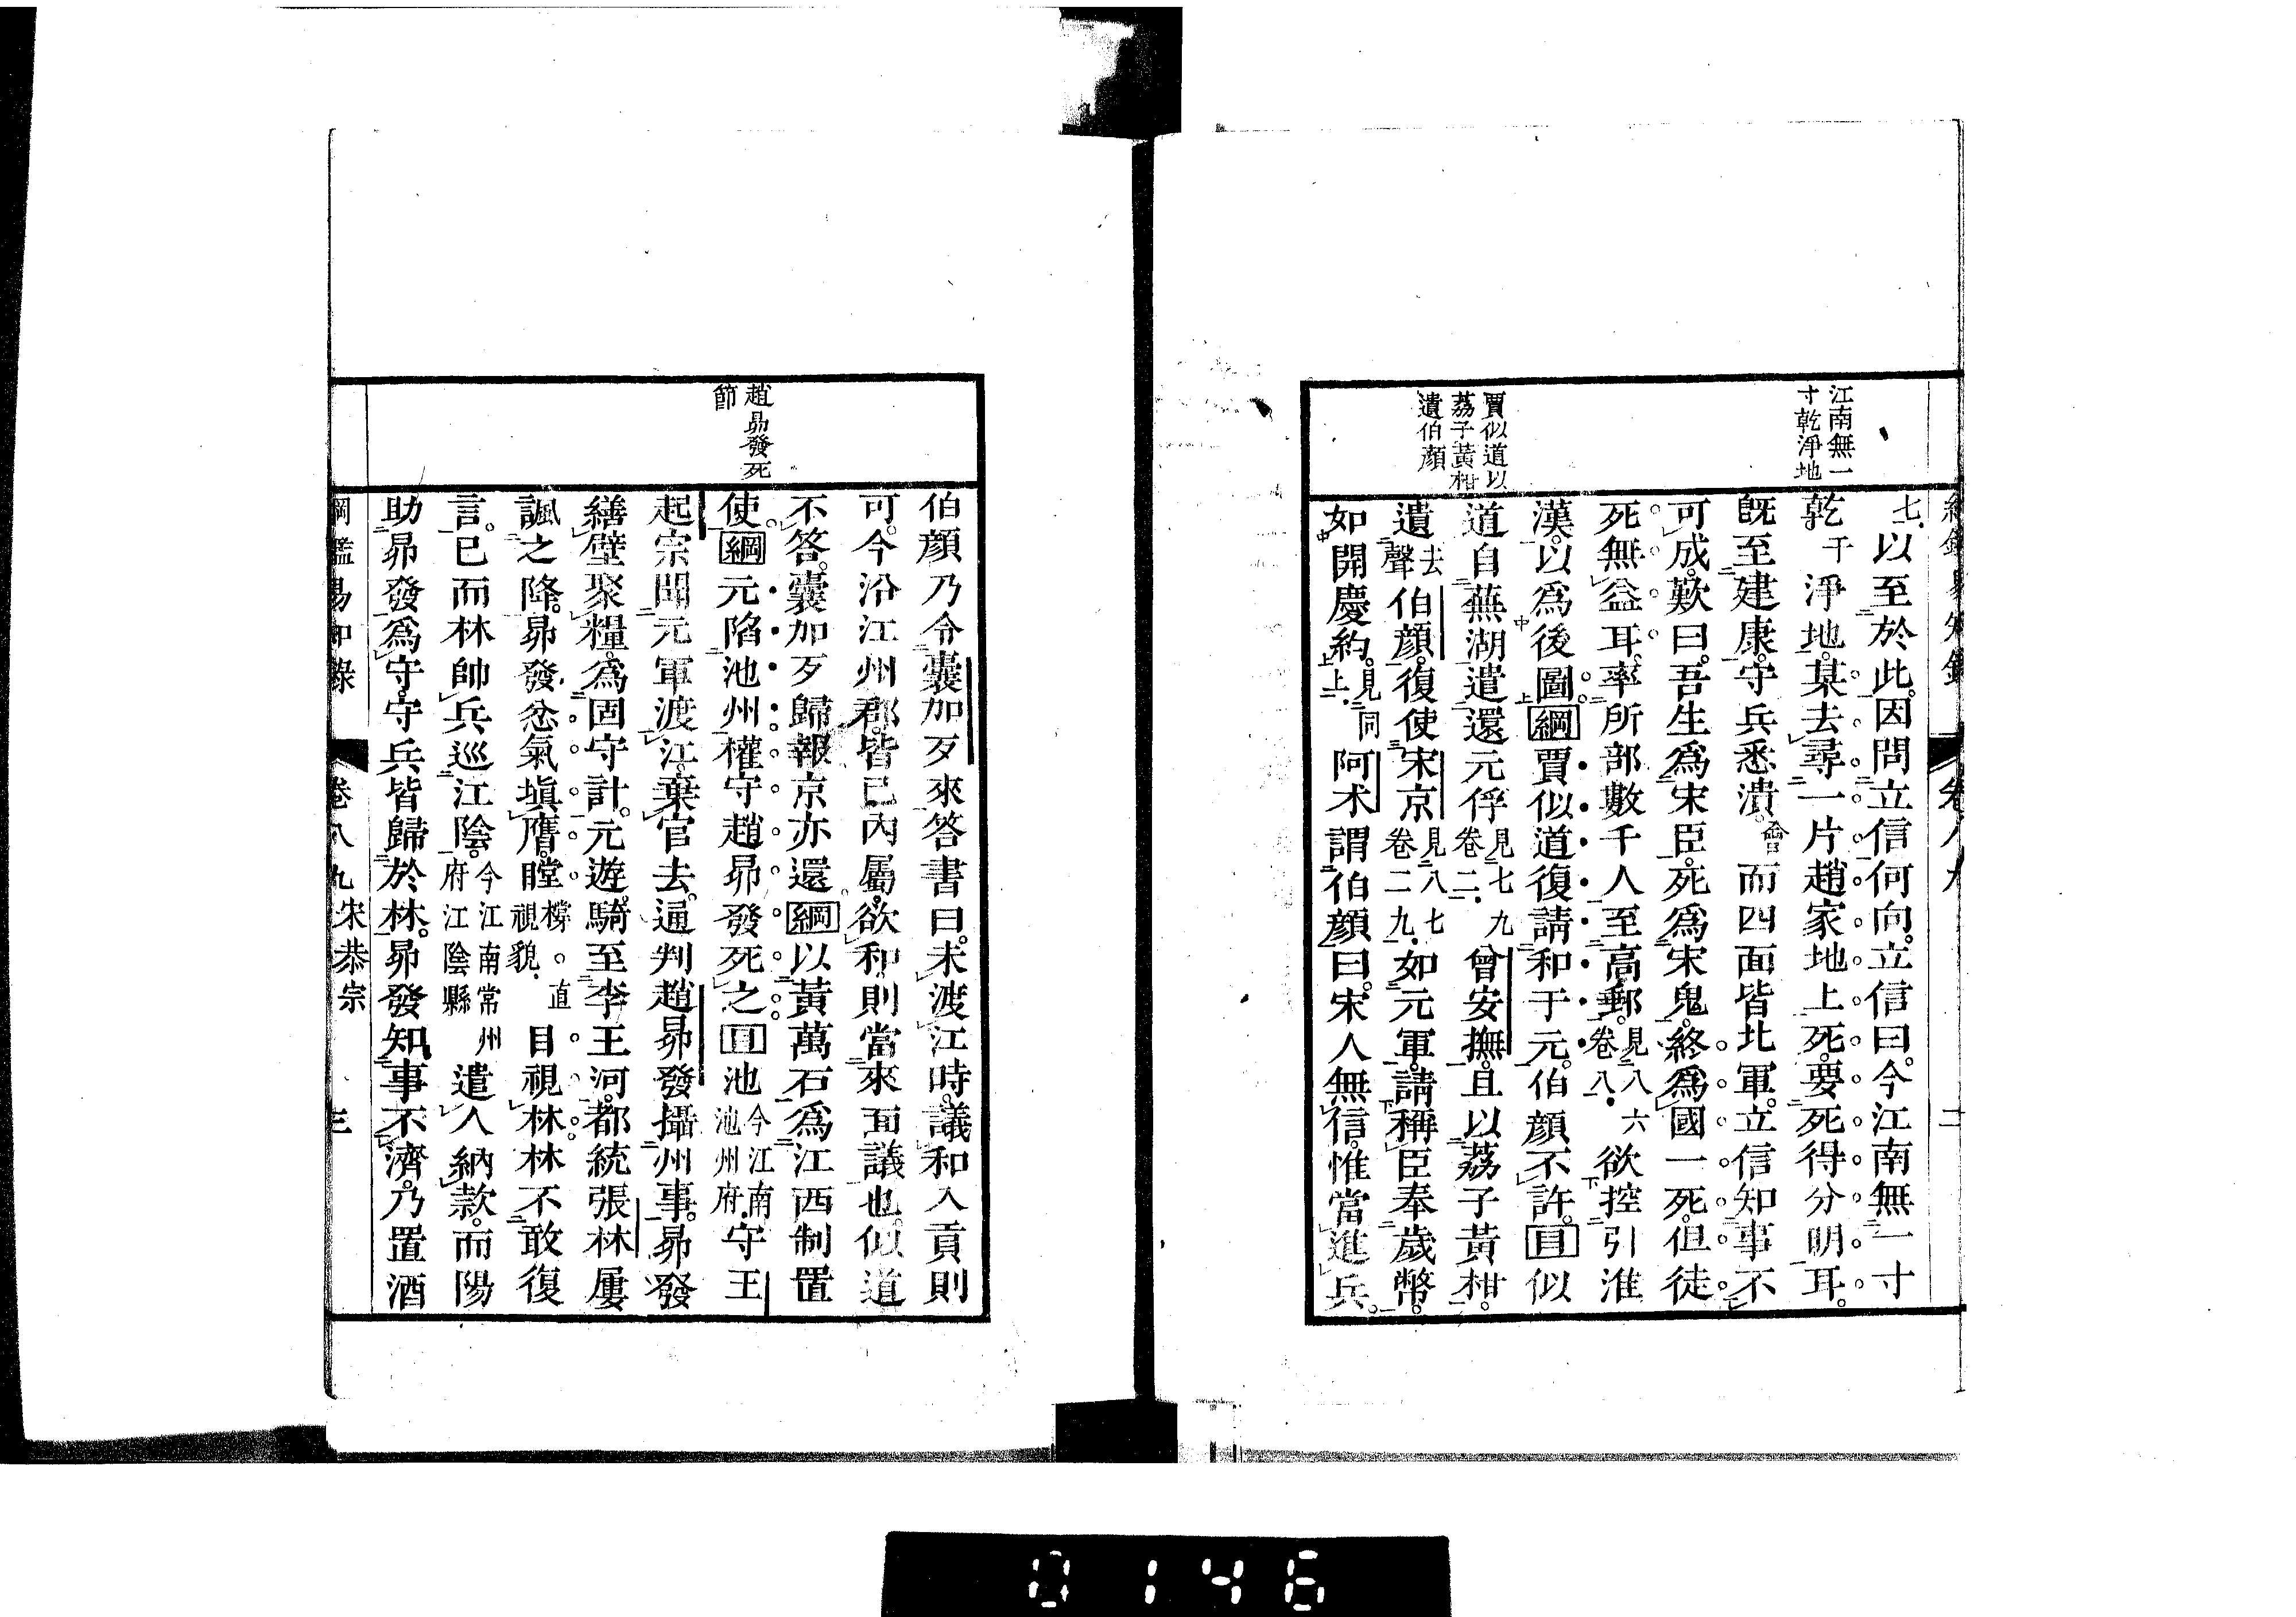 江南無一
寸乾淨地
賈似道以
荔子黃柑
遺伯顏
七以至於此。因問立信何向。立信曰。今江南無一寸
乾干淨地。某去尋一片趙家地上死。要死得分明耳。
既至建康。守兵悉潰。會而四面皆北軍。立信知事不
可成。歎曰。吾生爲宋臣。死爲宋鬼。終爲國一死。但徒
死無益耳。率所部數千人至高郵。見八六卷八欲控引淮
漢。以爲後圖。綱賈似道復請和于元。伯顏不許。目似
道自蕪湖遣還元俘見七九卷二曾安撫。且以荔子黃柑。
遺去聲伯顏。復使宋京見八七卷二九如元軍。請稱臣奉歲幣。
如開慶約。見同上上阿术謂伯顏曰。宋人無信。惟當進兵。
卷八九
二
趙昴發死
節
伯顏乃令囊加歹來答書曰。未渡江時。議和入貢則
可。今沿江州郡。皆已內屬。欲和則當來面議也。似道
不答。囊加歹歸報。京亦還綱以黃萬石爲江西制置
使。綱元陷池州。權守趙昴發死之目池今江南池州府守王
起宗聞元軍渡江。棄官去。通判趙昴發攝州事。昴發
繕壁聚糧。爲固守計。元遊騎至李王河。都統張林屢
諷之降。昴發忿氣塡膺。瞠橕。直視貌目視林。林不敢復
言。已而林帥兵巡江陰。今江南常州府江陰縣遣人納款。而陽
助昴發爲守。守兵皆歸於林。昴發知事不濟。乃置酒
綱鑑易知錄
卷八九宋恭宗
三
0146